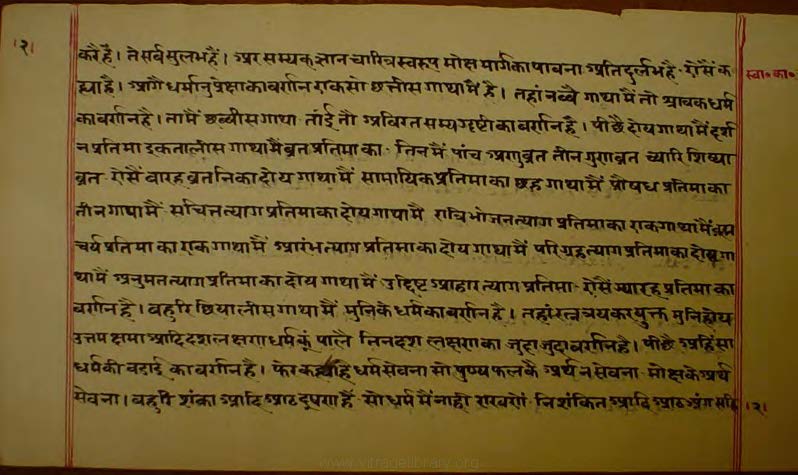 ।२।
करै है। ते सर्व सुलभ है। अर सम्यक ज्ञान चारित्र स्वरूप मोक्ष मार्ग का पावना अति दुर्लभ है ऐसैं क
ह्या है। आगै धर्मानुप्रेक्षा का वर्णन एक सो छत्तीस गाथा मैं है। तहां नब्बै गाथा मैं तो श्रावक धर्म
का वर्णन है। तामैं छब्बीस गाथा तांई तौ अविरत सम्यग्दृष्टी का वर्णन है। पीछै दोय गाथा मैं दर्श
न प्रतिमा इकतालीस गाथा मैं ब्रत प्रतिमा का तिनमैं पांच अणुब्रत तीन गुणब्रत च्यारि शिष्या
ब्रत ऐसैं बारह ब्रतनि का दोय गाथा मैं सामायिक प्रतिमा का छह गाथा मैं प्रौषध प्रतिमा का
तीन गाथा मैं सचित्त त्याग प्रतिमा का दोय गाथा मैं रात्रि भोजन त्याग प्रतिमा का एक गाथा मैं ब्रह्म
चर्य प्रतिमा का एक गाथा मैं आरंभ त्याग प्रतिमा का दोय गाथा मैं परिग्रह त्याग प्रतिमा का दोय गा
था मैं अनुमत त्याग प्रतिमा का दोय गाथा मैं उद्दिष्ट आहार त्याग प्रतिमा ऐसैं ग्यारह प्रतिमा का
वर्णन है। बहुरि छियालीस गाथा मैं मुनि के धर्म का वर्णन है। तहां रत्नत्रय कर युक्त मुनि होय
उत्तम क्षमा आदि दश लक्षण धर्म कूं पालै तिन दश लक्षण का जुदा जुदा वर्णन है। पीछै अहिंसा
धर्म की बडाई का वर्णन है। फेर कह्या है धर्म सेवना सो पुण्य फल के अर्थ न सेवना मोक्ष के अर्थ
सेवना। बहुरि शंका आदि आठ दूषण है सो धर्म मैं नाही राखणें निशंकित आदि आठ अंग सहि
स्वा॰ का॰
।२।
www.vitragelibrary.org